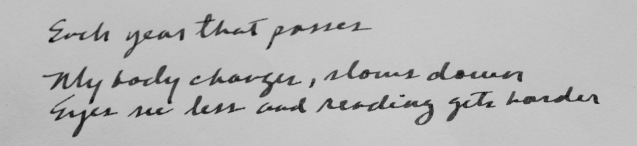 Each year that passes
My body changes, slows down
Eyes see less and reading gets harder